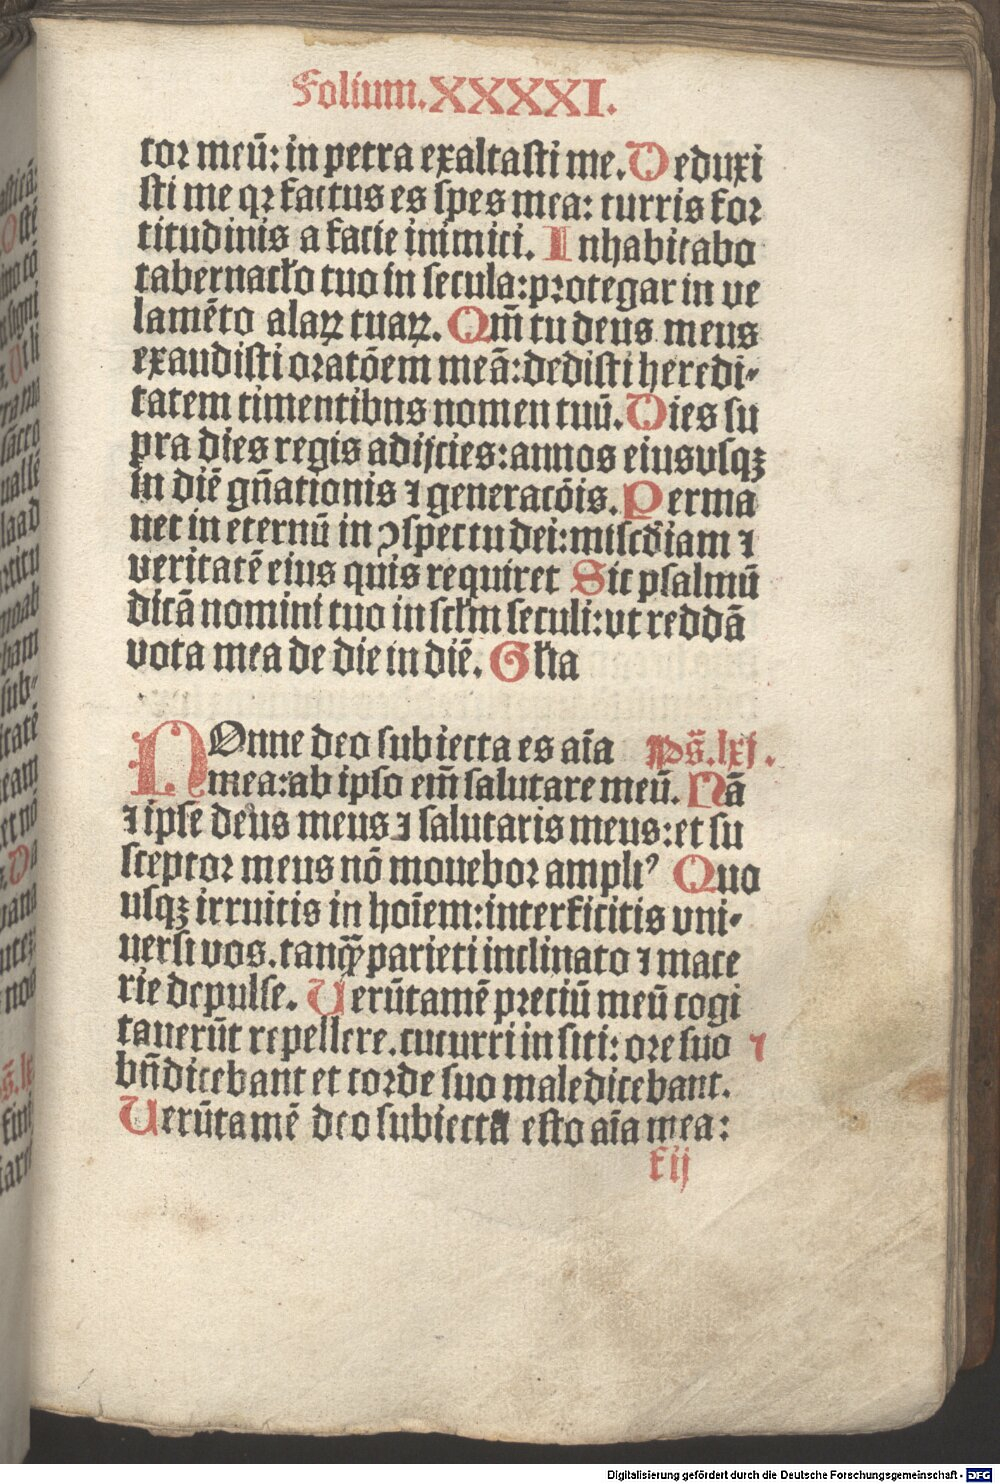 Folium.XXXXXI.
tor meū: in petra exaltasti me. Deduxi
sti me qꝛ factus es spes mea: turris for
titudinis a facie inimici. Inhabitabo
tabernacĺo tuo in secula: protegar in ve
lamēto alaꝝ tuaꝝ. Qm̄ tu deus meus
exaudisti oratōem meā: dedisti heredi-
tatem timentibus nomen tuū. Dies su
pra dies regis adijcies: annos eius vsqꝫ
in diē gn̄ationis ⁊ generacōis. Perma
net in eternū in ꝯspectu dei: misc̄diam ⁊
veritatē eius quis requiret Sic psalmū
dicā nomini tuo in scĺm seculi: vt reddā
vota mea de die in diē. Gĺia
NOnne deo subiecta es aīa Ps̄.lxj.
mea: ab ipso em̄ salutare meū. Nā
⁊ ipse deus meus ⁊ salutaris meus: et su
sceptor meus nō mouebor ampliꝰ Quo
usqꝫ irruitis in hoīem: interficitis vni-
uersi vos. tanqꝫ parieti inclinato ⁊ mace
rie depulse. Uerūtamē preciū meū cogi
tauerūt repellere. cucurri in siti: ore suo ⁊
bn̄dicebant et corde suo maledicebant.
Uerūtamē deo subiecta esto aīa mea:
fij
Digitalisierung gefördert durch die Deutsche Forschungsgemeinschaft - DFG